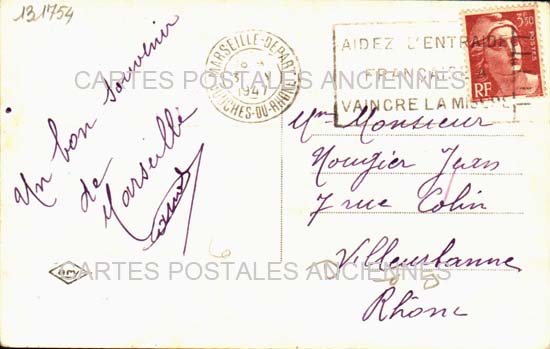 131754
Un bon souvenir
de
Marseille
MARSEILLE-DEPART
1947
BOUCHES-DU-RHONE
AIDEZ L'ENTRAIDE
FRANÇAISE A
VAINCRE LA MISERE
3F50
POSTES
RF
CARTES POSTALES ANCIENNES
Monsieur
Nougier Jean
7 rue Colin
Villeurbanne
Rhône
CARTES POSTALES ANCIENNES